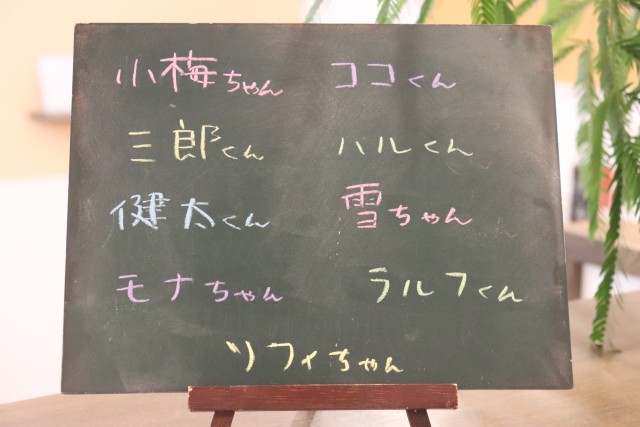 小梅ちゃん ココくん
三郎くん ハルくん
健太くん 雪ちゃん
モナちゃん ラルフくん
ソフィちゃん